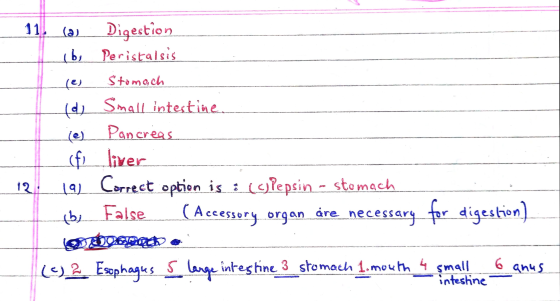 11. (a) Digestion
(b) Peristalsis
(c) Stomach
(d) Small intestine.
(e) Pancreas
(f) liver
12. (a) Correct option is : (c) Pepsin - stomach
(b) False (Accessory organ are necessary for digestion)
(c) 2 Esophagus 5 large intestine 3 stomach 1. mouth 4 small intestine 6 anus